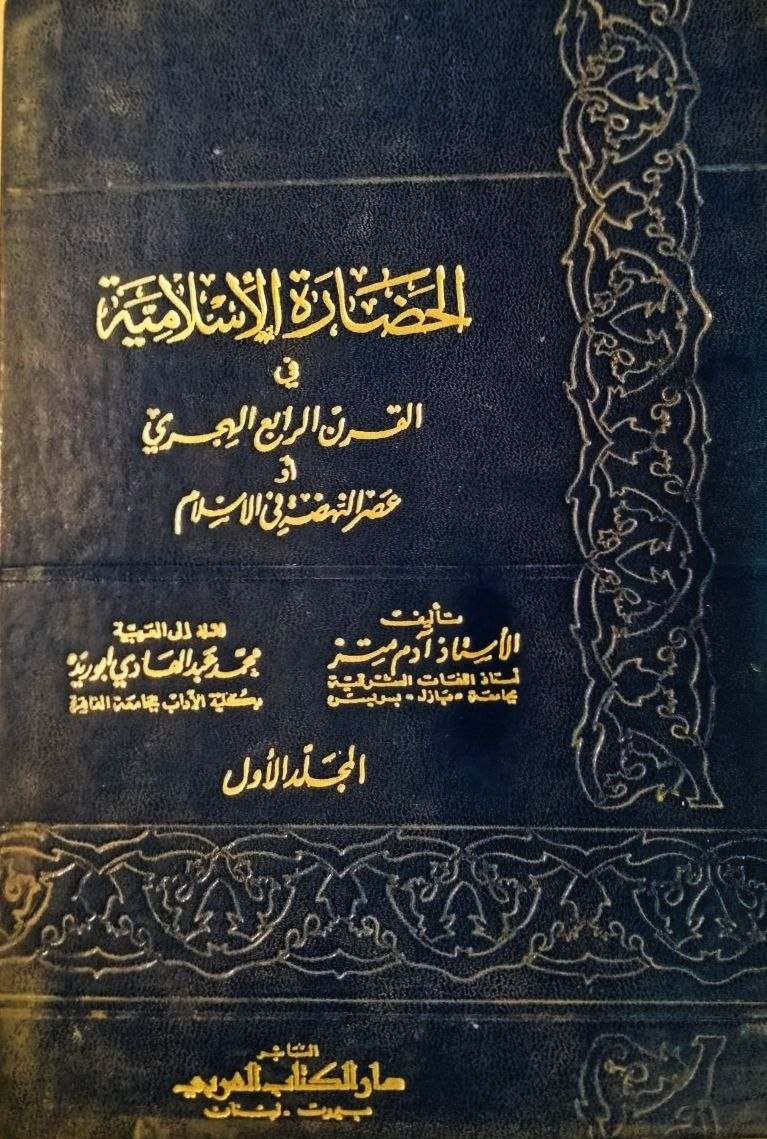 الحضارة الإسلامية
في
القرن الرابع الهجري
أو
عصر النهضة في الإسلام
تأليف
الأستاذ آدم متز
أستاذ اللغات الشرقية
بجامعة «بازل» بسويسرا
نقله إلى العربية
محمد عبد الهادي أبو ريدة
بكلية الآداب بجامعة القاهرة
المجلد الأول
الناشر
دار الكتاب العربي
بيروت - لبنان